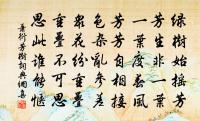 綠樹始搖芳
芳生非一葉
一葉度春風
芳芳自相接
色雜亂參差
眾花紛重疊
重疊不可思
思此誰能愜
蕭衍芳樹詞典網集